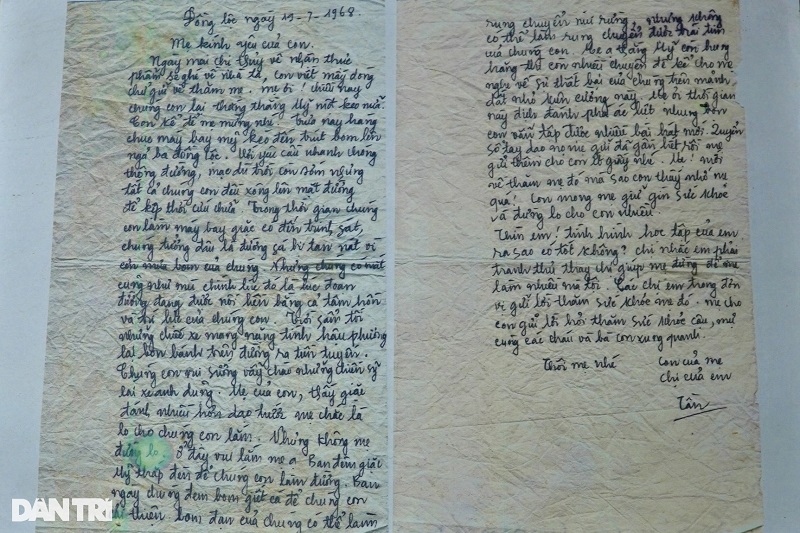 Đồng lộc ngày 19-7-1968
Mẹ kính yêu của con.
Ngày mai chị Thủy về nhận thực
phẩm sẽ ghé về nhà ta, con viết mấy dòng
chữ gửi về thăm mẹ. Mẹ ơi! chiều nay
chúng con lại thắng thằng Mỹ một keo nữa.
Con kể để mẹ mừng nhé. Trưa nay hàng
chục máy bay mỹ kéo đến trút bom lên
ngã ba đồng lộc. Với yêu cầu nhanh chóng
thông đường, mặc dù trời còn sớm nhưng
tất cả chúng con đều xông lên mặt đường
để kịp thời cứu chữa. Trong thời gian chúng
con làm máy bay giặc có đến trinh sát,
chúng tưởng đâu là đường sá bị tan nát vì
cơn mưa bom của chúng. Nhưng chúng có biết
cũng như mọi chính lúc đó là lúc đoạn
đường đang được nối liền bằng cả tâm hồn
và trí lực của chúng con. Trời sẩm tối
những chiếc xe mang nặng tình hậu phương
lại bon bánh trên đường ra tiền tuyến.
Chúng con vui sướng vẫy chào những chiến sỹ
lái xe anh dũng. Mẹ của con, thấy giặc
đánh nhiều hôm dạo trước mẹ chắc là
lo cho chúng con lắm. Nhưng không mẹ
đừng lo ở đây vui lắm mẹ ạ. Ban đêm giặc
Mỹ thắp đèn để chúng con làm đường. Ban
ngày chúng đem bom giết cá để chúng con
thiện bom đạn của chúng có thể làm
rung chuyển núi rừng nhưng không
có thể làm rung chuyển được trái tim
của chúng con. Mẹ ạ thằng Mỹ còn hung
hăng thì con nhiều chuyện để kể cho mẹ
nghe về sự thất bại của chúng trên mảnh
đất nhỏ kiên cường này. Mẹ ơi thời gian
này địch đánh phá ác liệt nhưng
con vẫn tập được nhiều bài hát mới. Quyển
sổ tay dạo nọ mẹ gửi đã gần hết rồi mẹ
gửi thêm cho con ít giấy nhé. Mẹ! mới
về thăm mẹ đó mà sao con thấy nhớ mẹ
quá! Con mong mẹ giữ gìn sức khỏe
và đừng lo cho con nhiều.
Thìn em! tình hình học tập của em
ra sao có tốt không? chị nhắc em phải
tranh thủ thay chị giúp mẹ đừng để mẹ
làm nhiều mà tội. Các chị em trong đơn
vị gửi lời thăm sức khỏe mẹ đó. mẹ cho
con gửi lời hỏi thăm sức khỏe cậu, mự
cùng các cháu và bà con xung quanh.
Thôi mẹ nhé Con của mẹ
Chị của em
Tần
DÂN TRÍ